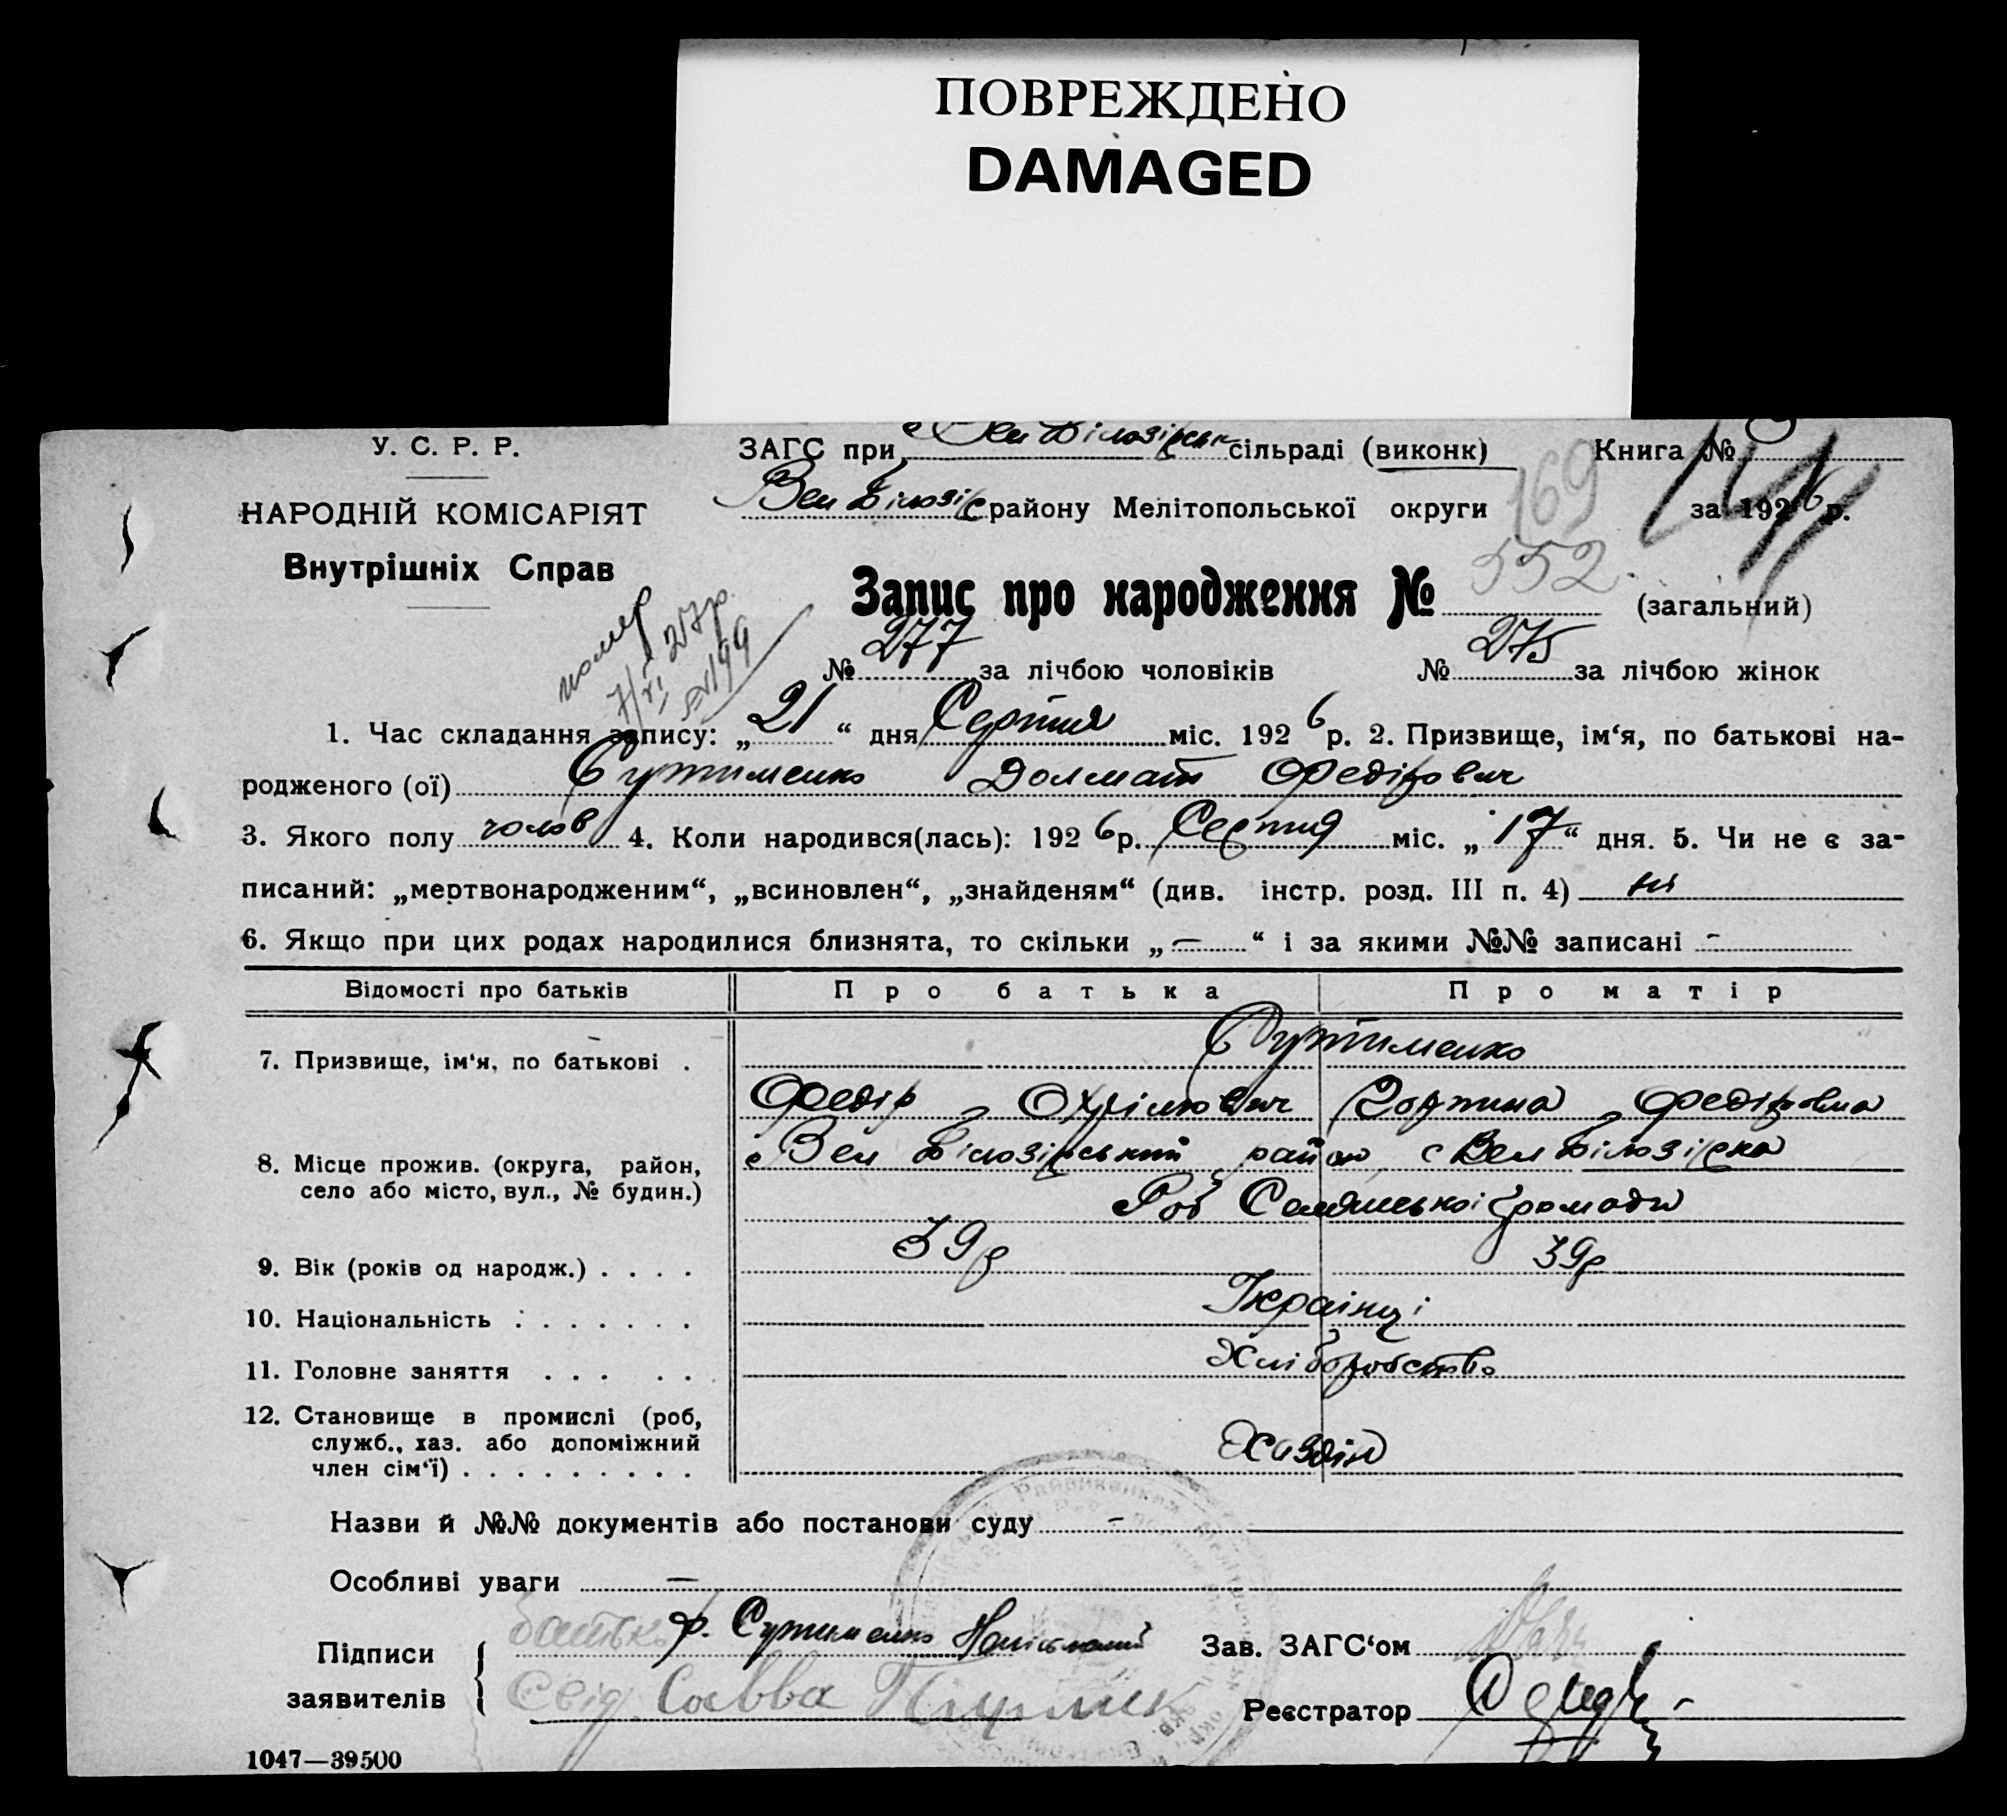 ПОВРЕЖДЕНО
DAMAGED
У. С. Р. Р.
ЗАГС при Вел Білозірськ сільраді (виконк)
Книга №
169
НАРОДНІЙ КОМІСАРІЯТ
Вел Білозір району Мелітопольської округи
за 1926 р.
Внутрішніх Справ
помер
7/VI 27р.
№199
Запис про народження № 552. (загальний)
№ 277 за лічбою чоловіків № 275 за лічбою жінок
1. Час складання запису: „21“ дня Серпня міс. 1926 р. 2. Призвище, ім‘я, по батькові на-
родженого (ої) Сутименко Долмат Федірович
3. Якого полу чолов 4. Коли народився(лась): 1926 р. Серпня міс. „17“ дня. 5. Чи не є за-
писаний: „мертвонародженим“, „всиновлен“, „знайденям“ (див. інстр. розд. III п. 4) ні
6. Якщо при цих родах народилися близнята, то скільки „—“ і за якими №№ записані -
Відомості про батьків Про батька Про матір
7. Призвище, ім‘я, по батькові . Сутименко
Федір Охрімович Федіровна
8. Місце прожив. (округа, район, село або місто, вул., № будин.) Вел Білозірський район с Вел Білозірка
Роб Селянської громади
9. Вік (років од народж.) . . . . 39р 39р
10. Національність . . . . . . . Українці
11. Головне заняття . . . . . Хліборобство
12. Становище в промислі (роб,
служб., хаз. або допоміжний
член сім‘ї) . . . . . . . . . Хазяїн
Назви й №№ документів або постанови суду -
Особливі уваги —
Підписи
заявителів
батько ф. Сутименко
Свід Савва
Зав. ЗАГС‘ом
Реєстратор
1047—39500